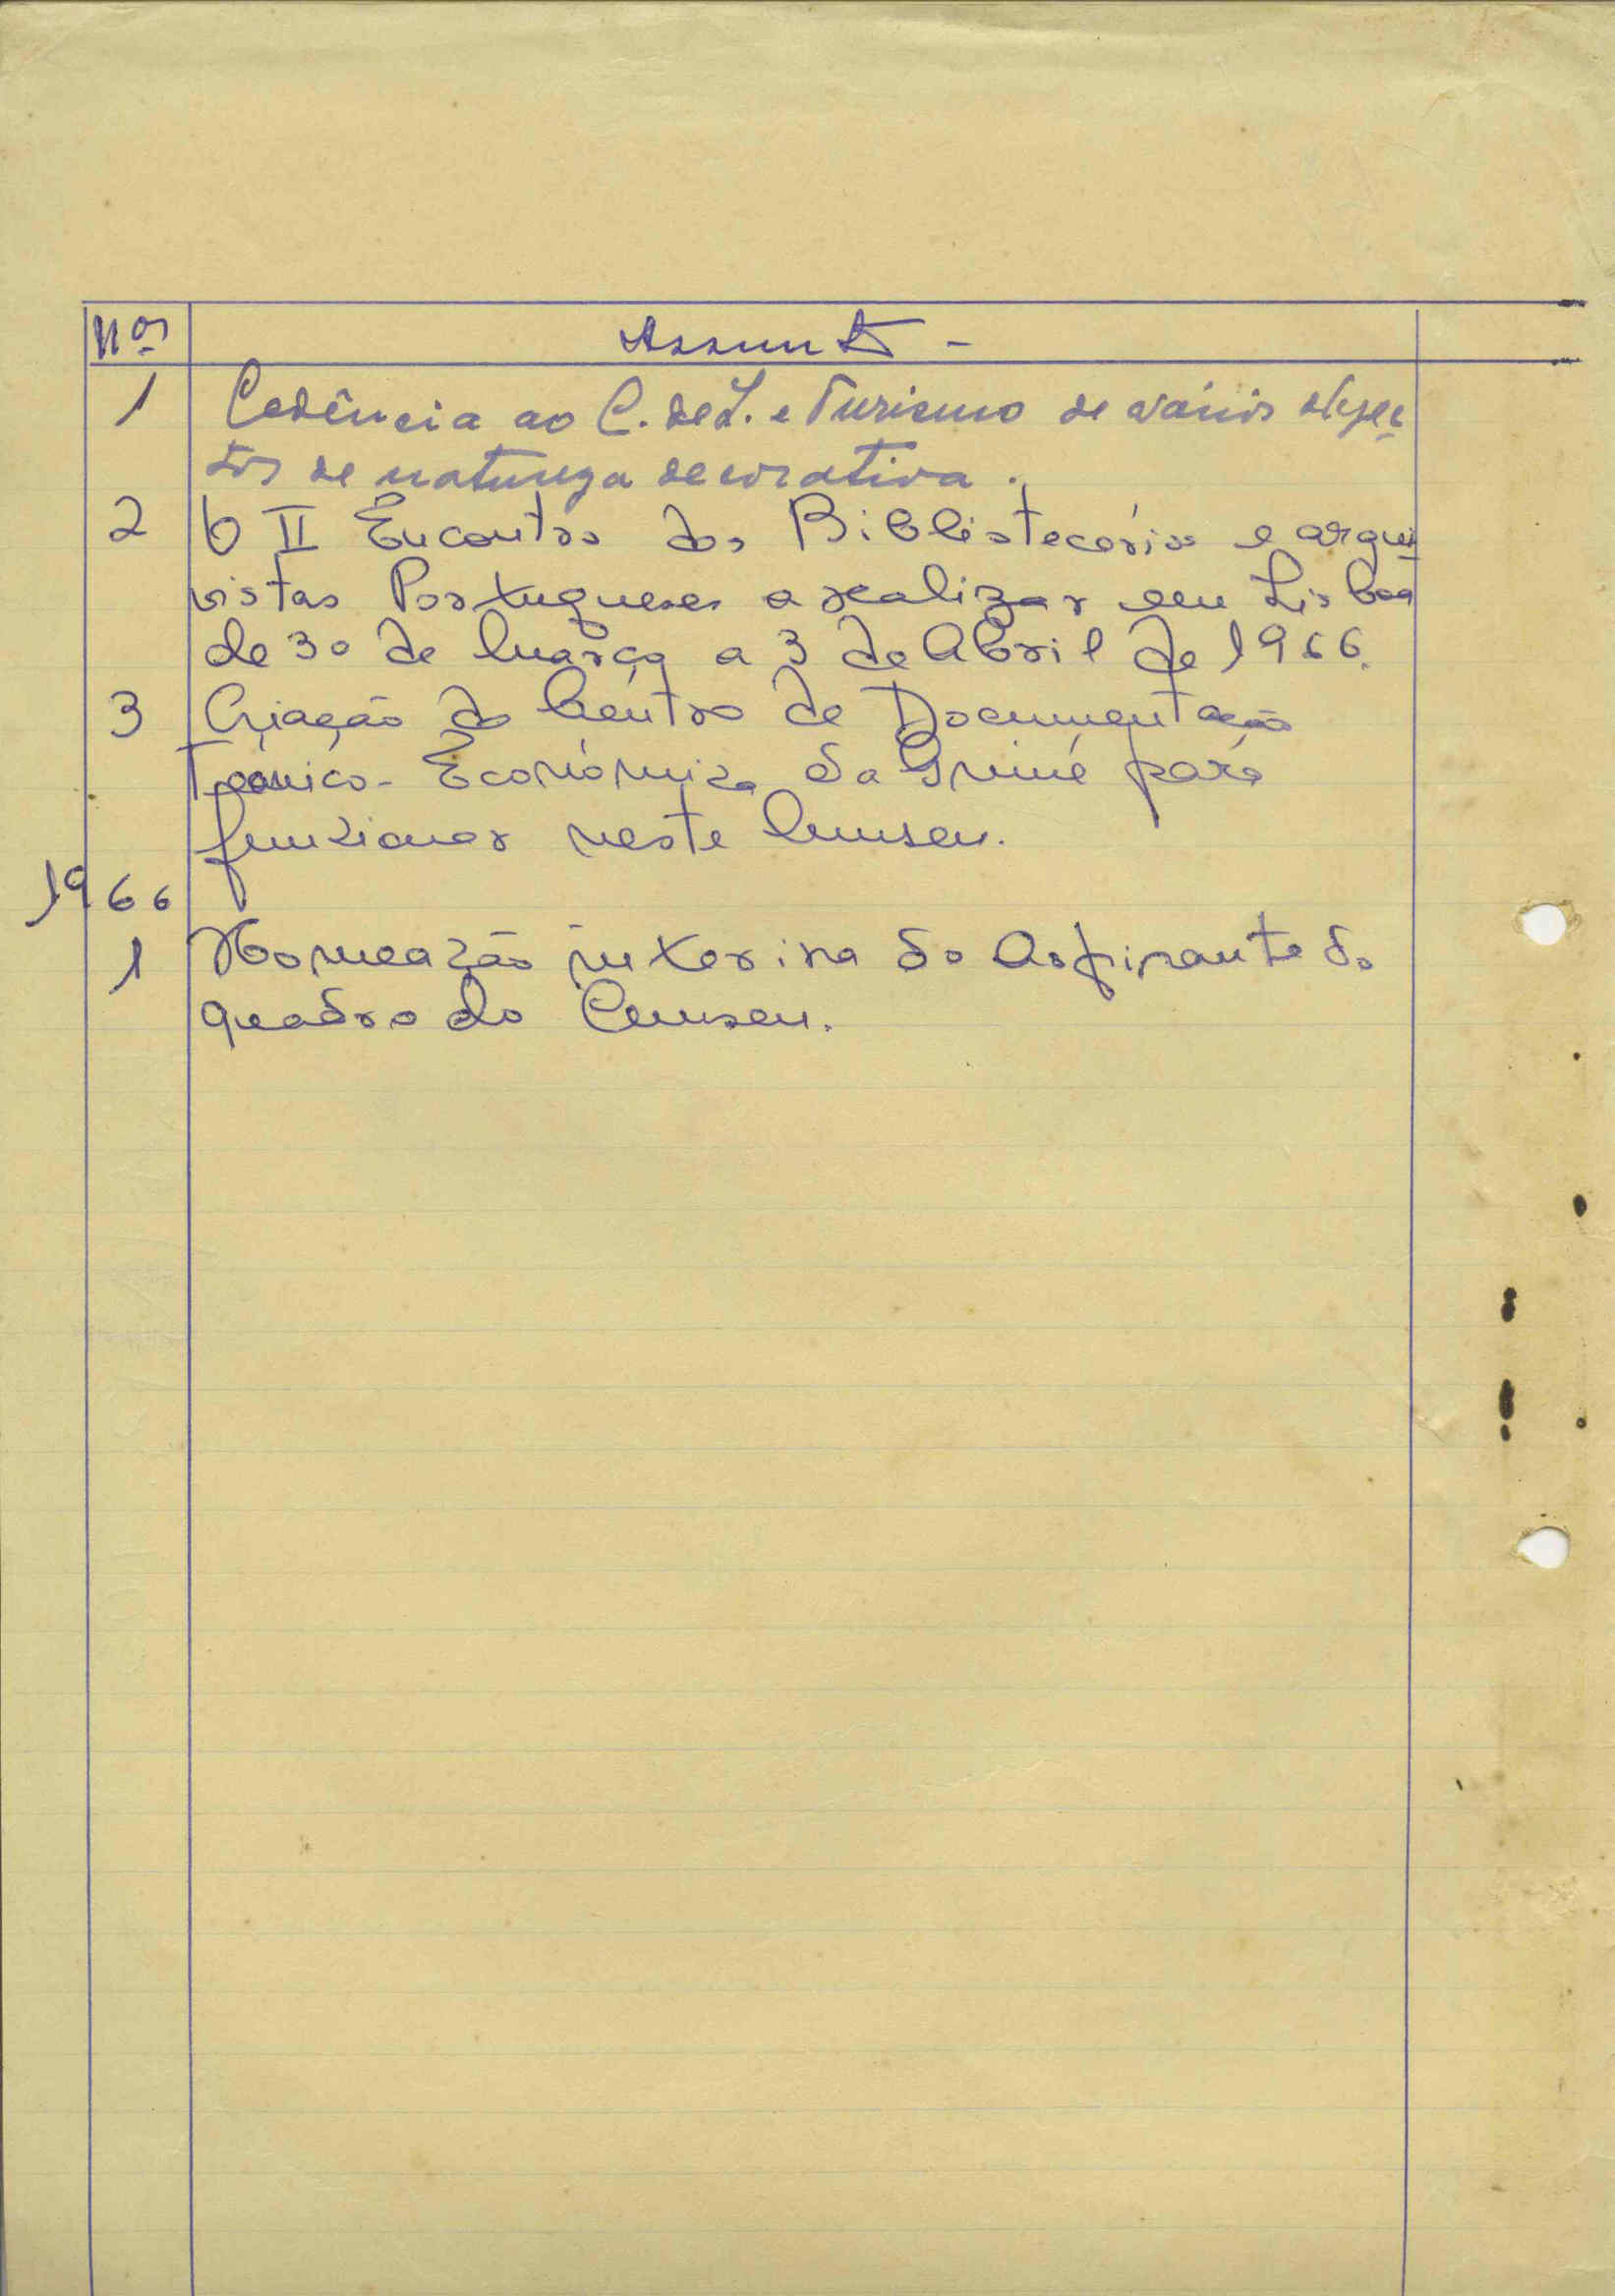 Nos Assunto -
1 Cedência ao C. de I. e Turismo de vários objec
tos de natureza decorativa.
2 O II Encontro dos Bibliotecários e arqui
vistas Portugueses a realizar em Lisboa
de 30 de Março a 3 de Abril de 1966.
3 Criação do Centro de Documentação
Técnico-Económica da Guiné para
funcionar neste Museu.
1966
1 Nomeação interina do Aspirante do
quadro do Museu.